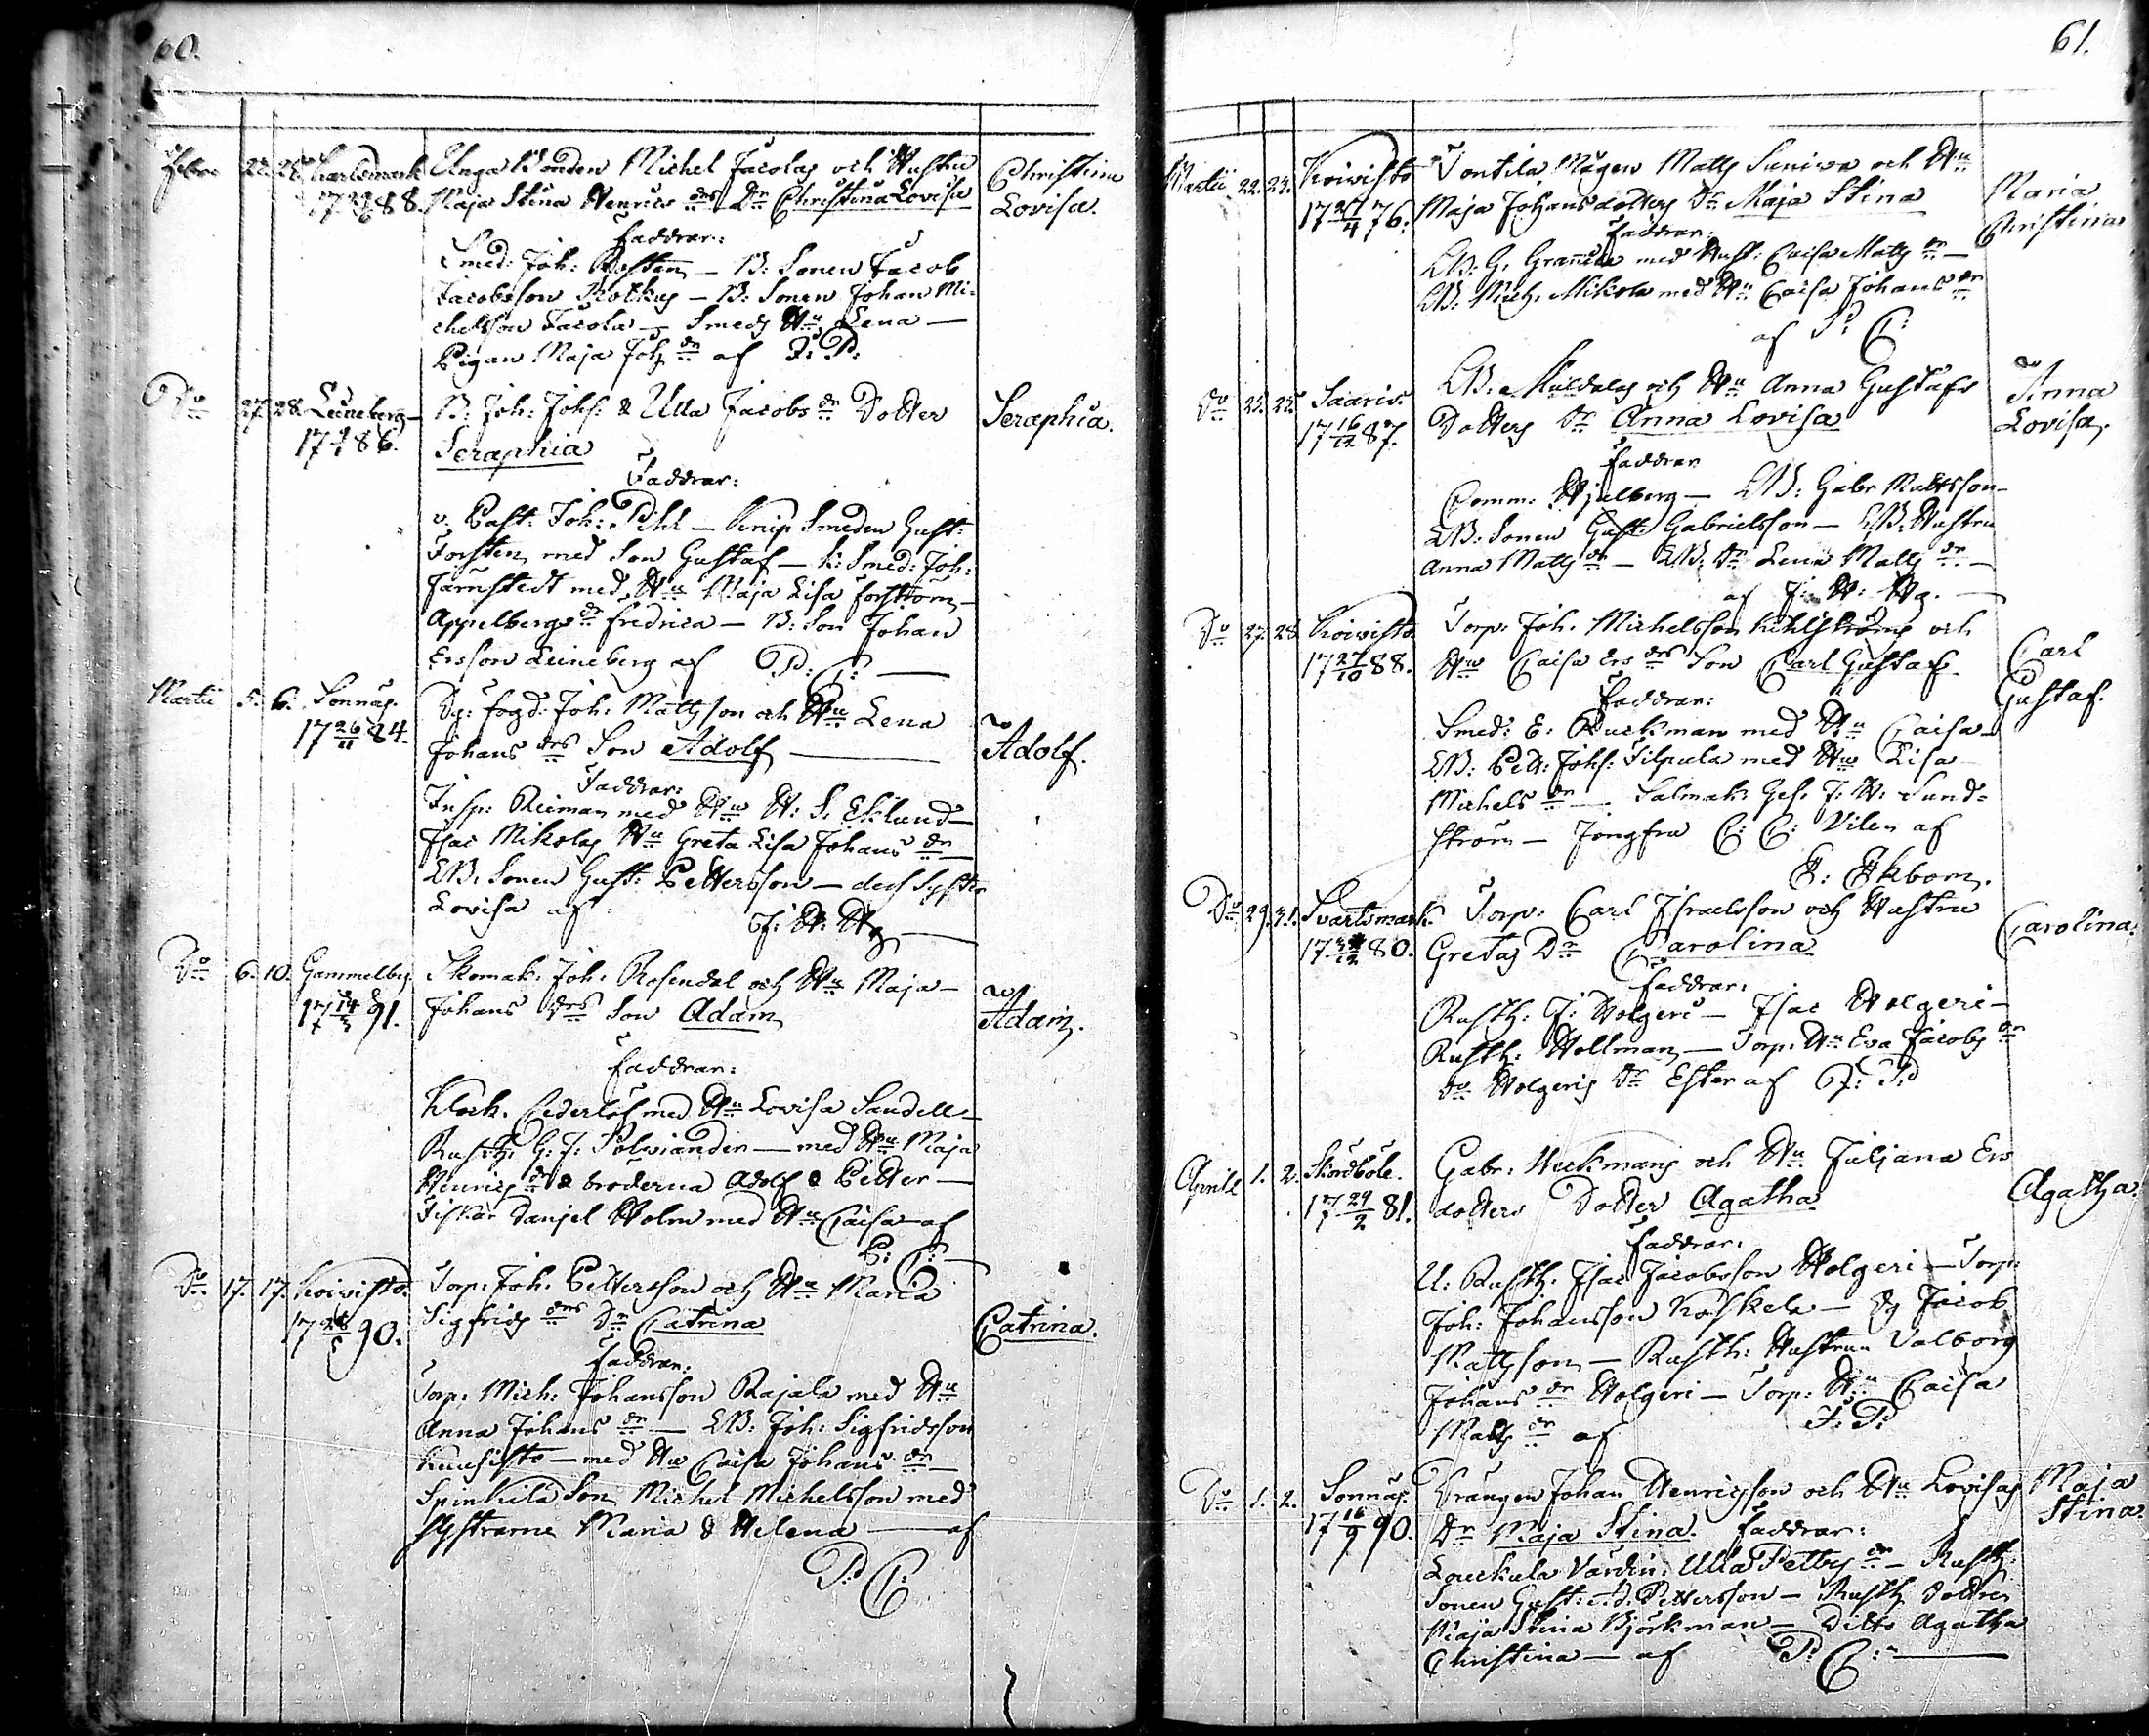 60.
Febr. 22. 24. Karlsmark Unga Bonden Michel Jacolas och Hustru Christina
88. Maja Stina Henrics drs Dr Christina Lovisa Lovisa.
Faddrar:
Smed: Joh: Rostén – B: Sonen Jacob
Jacobsson – B: Sonen Johan Mi-
chelsson Jacola – Smeds Hu Lena –
Pigan Maja Joh dr af J: P:
Do 27. 28. Leineberg – B: Joh: Johs: & Ulla Jacobs dr Dotter Seraphia.
86. Seraphia
Faddrar:
v. Past: Joh: Pihl – Knip Smeden Gust:
Forsten med Son Gustaf – K: Smed: Joh:
Färnstedt med Hu Maja Lisa Forström –
Appelbergs dr Fredrica – B: Son Johan
Ersson Leineberg af P: C:
Martii 5. 6. Sonnäs. Dg: fogd: Joh: Mattsson och Hu Lena
17 26/11 84. Johans drs Son Adolf Adolf.
Faddrar:
Insp: Reiman med Hu H: S. Eklund –
Isac Mikolas Hu Greta Lisa Johans dr –
LB: Sonen Gust: Pettersson – dess Syster
Lovisa af J: H: Hg
Do 6. 10. Gammelby Skomak: Joh: Rosendal och Hu Maja –
17 14/3 91. Johans drs Son Adam Adam.
Faddrar:
Klock. Cederlöf med Hu Lovisa Sandell –
Rusth: G: J: Polviander – med Hu Maja
Henrics dr & bröderna Adolf & Petter –
Fiskar Danjel Holm med Hu Caisa af
P: C:
Do 17. 17. Koivisto. Torp: Joh: Pettersson och Hu Maria
90. Sigfrids drs Dr Catrina Catrina.
Faddrar:
Torp: Mich: Johansson Rajala med Hu
Anna Johans dr – LB: Joh: Sigfridsson
Kuusisto – med Hu Caisa Johans dr –
Spinkilä Son Michel Michelsson med
Systrarne Maria & Helena – af
P: C:
61.
Martii 22. 23. Koivisto Tontila Mågen Matts Suniva och Hu Maria
76. Maja Johansdotters Dr Maja Stina Christina
Faddrar:
LB: G: med Hust: Caisa Matts dr –
LB: Mich: Mikola med Hu Caisa Johans dr
af P: C:
Do 25. 25. Saaris: LB: Muldalas och Hu Anna Gustafs Anna
17 16/12 87. Dotters Dr Anna Lovisa Lovisa.
Faddrar
Comm: Hjulberg – LB: Gabr Mattsson –
LB: Sonen Gust: Gabrielsson – LB: Hustru
Anna Matts dr – LB: Dr Lena Matts dr –
af J: H: Hg.
Do 27. 28. Koivisto Torp: Joh: Michelsson Kihlströms och Carl
17 27/10 88. Hu Caisa Ers drs Son Carl Gustaf Gustaf.
Faddrar:
Smed: E: Ruckman med Hu Caisa –
LB: Pett: Johs: Silpula med Hu Lisa
Michels dr – Salmak: Ges: J: H: Sund-
ström – Jongfru C: C: Vilen af
E: Ekbom.
Do 29. 31. Svartsmark. Torp: Carl Israelsson och Hustru Carolina.
80. Gretas Dr Carolina
Faddrar:
Rusth: J: Holgeri – Isac Holgeri –
Rusth: Hollman – Torp: Hu Eva Jacobs dr
do Holgeris Dr Ester af J: P:
Aprill 1. 2. Skordböle. Gabr: Heckmans och Hu Juljana Ers
17 24/2 81. dotters Dotter Agatha Agatha.
Faddrar:
U: Rusth: Isac Jacobsson Holgeri – Torp:
Joh: Johansson Koskela – Dg Jacob
Mattsson – Rusth: Hustrun Valborg
Johans dr Holgeri – Torp: Hu Caisa
Matts dr af J: P:
Do 1. 2. Sonnäs. Drängen Johan Henricsson och Hu Lovisas Maja
17 16/9 90. Dr Maja Stina. Faddrar: Stina.
Louckula Värdin: Ulla Petters dr – Rusth:
Sonen Gust: Ad: Pettersson – Rusth Dottren
Maja Stina Björkman – Ditto Agatha
Christina – af P: C: